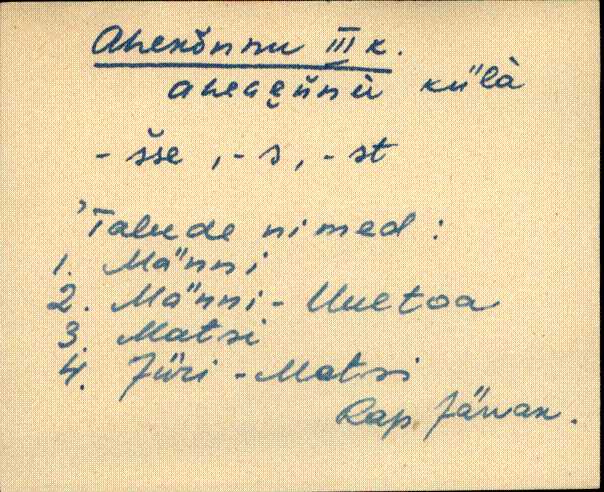 Ahekõnnu III k.
ahegẹ̆ünü külà
- šse , - s , - st
Talude nimed :
1. Männi
2. Männi - Uuetoa
3. Matsi
4. Jüri - Matsi
Rap. Järvak.